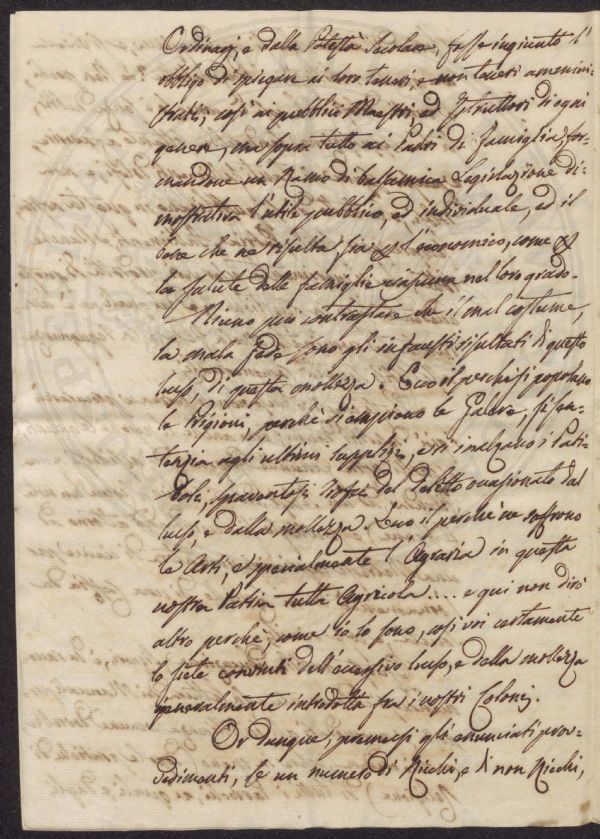 Ordinarj, e dalla Potestà Secolare, fosse ingiunto l'
obbligo di spiegare ai loro
strati, così ai pubblici Maestri, ed Istruttori di ogni
genere, ma sopra tutto ai Padri di famiglia, for-
mandone un Ramo di balsamica Legislazione di-
mostrativa l'utile pubblico, ed individuale, ed il
bene che ne risulta sia  l'economico, come
la salute delle famiglie ciascuna nel loro grado.
Niuno può contrastare che il mal costume,
la mala fede sono gli infausti risultati di questo
lusso, di questa mollezza. Ecco il perchè si popolano
le Prigioni, perchè si empiono le Galere, si sen-
tenzia agli ultimi supplizj, e si inalzano i Pati-
boli, spaventosi Trofei del delitto ocasionato dal
lusso, e dalla mollezza. Ecco il perchè ne soffrono
le Arti, e specialmente l'Agraria in questa
nostra Patria tutta Agricola .... e qui non dirò
altro perchè, come io lo sono, così voi certamente
lo siete convinti dell'eccessivo lusso, e della mollezza
generalmente introdotta fra i nostri Colonj.
Or dunque, premessi gli enunciati prov-
vedimenti, se un numero di Ricchi, e di non Ricchi,